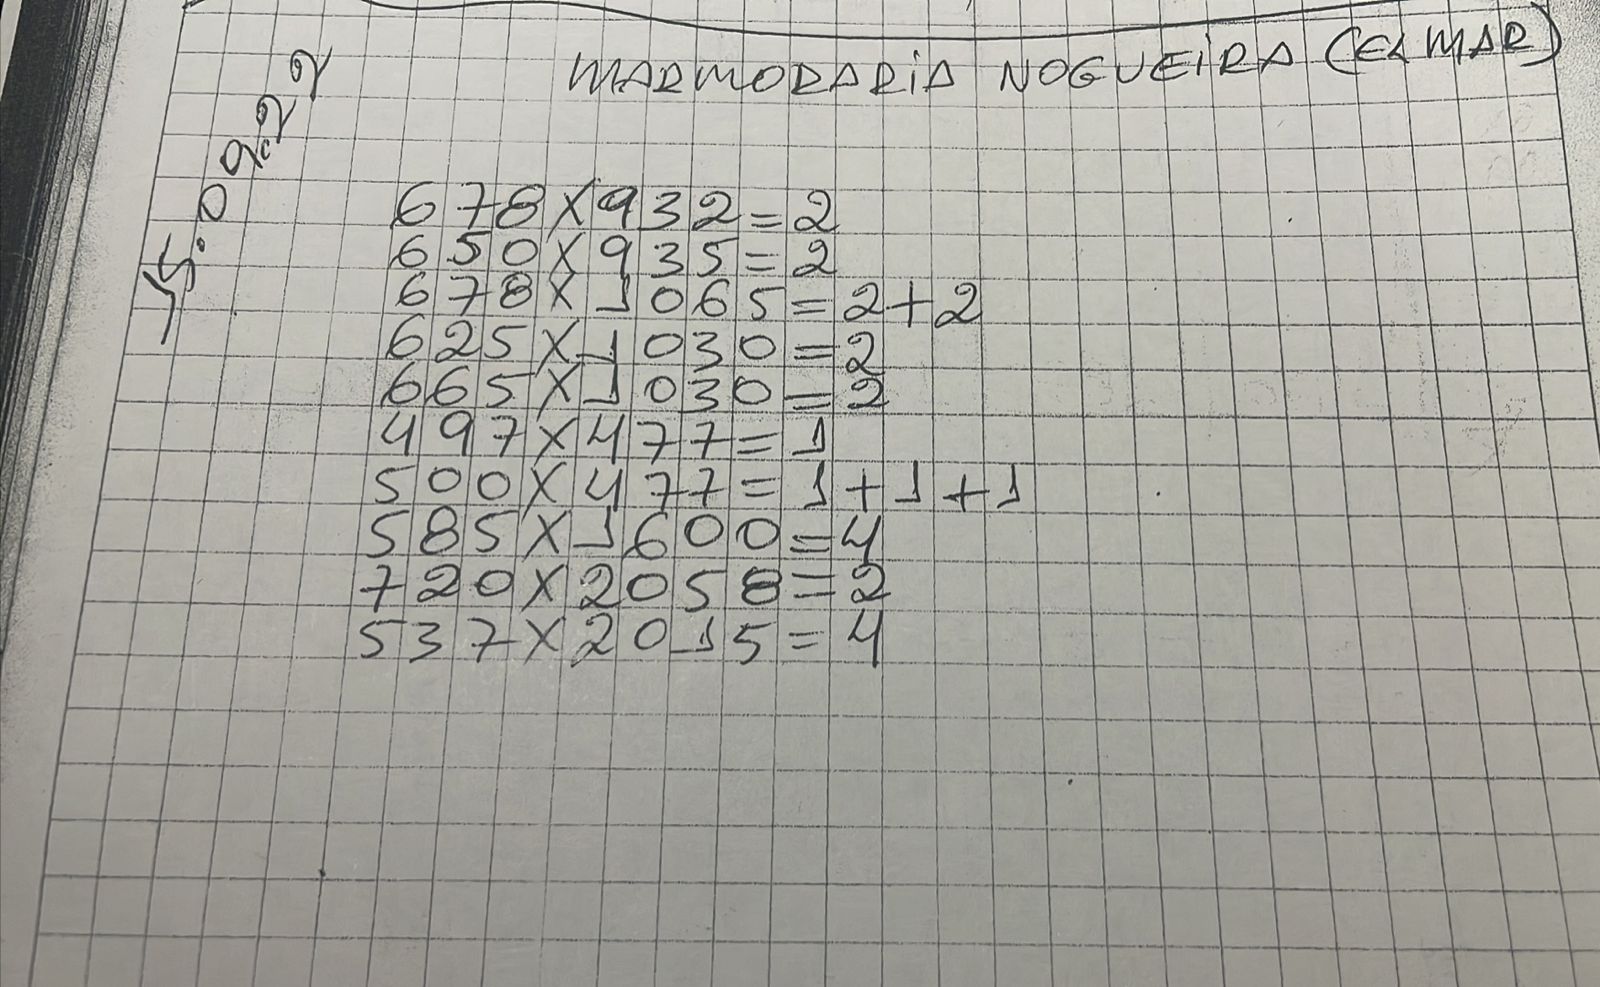 MARMORARIA NOGUEIRA (ELMAR)
15.09.22
678X932=2
650X935=2
678X1065=2+2
625X1030=2
665X1030=2
497X477=1
500X477=1+1+1
585X1600=4
720X2058=2
537X2015=4